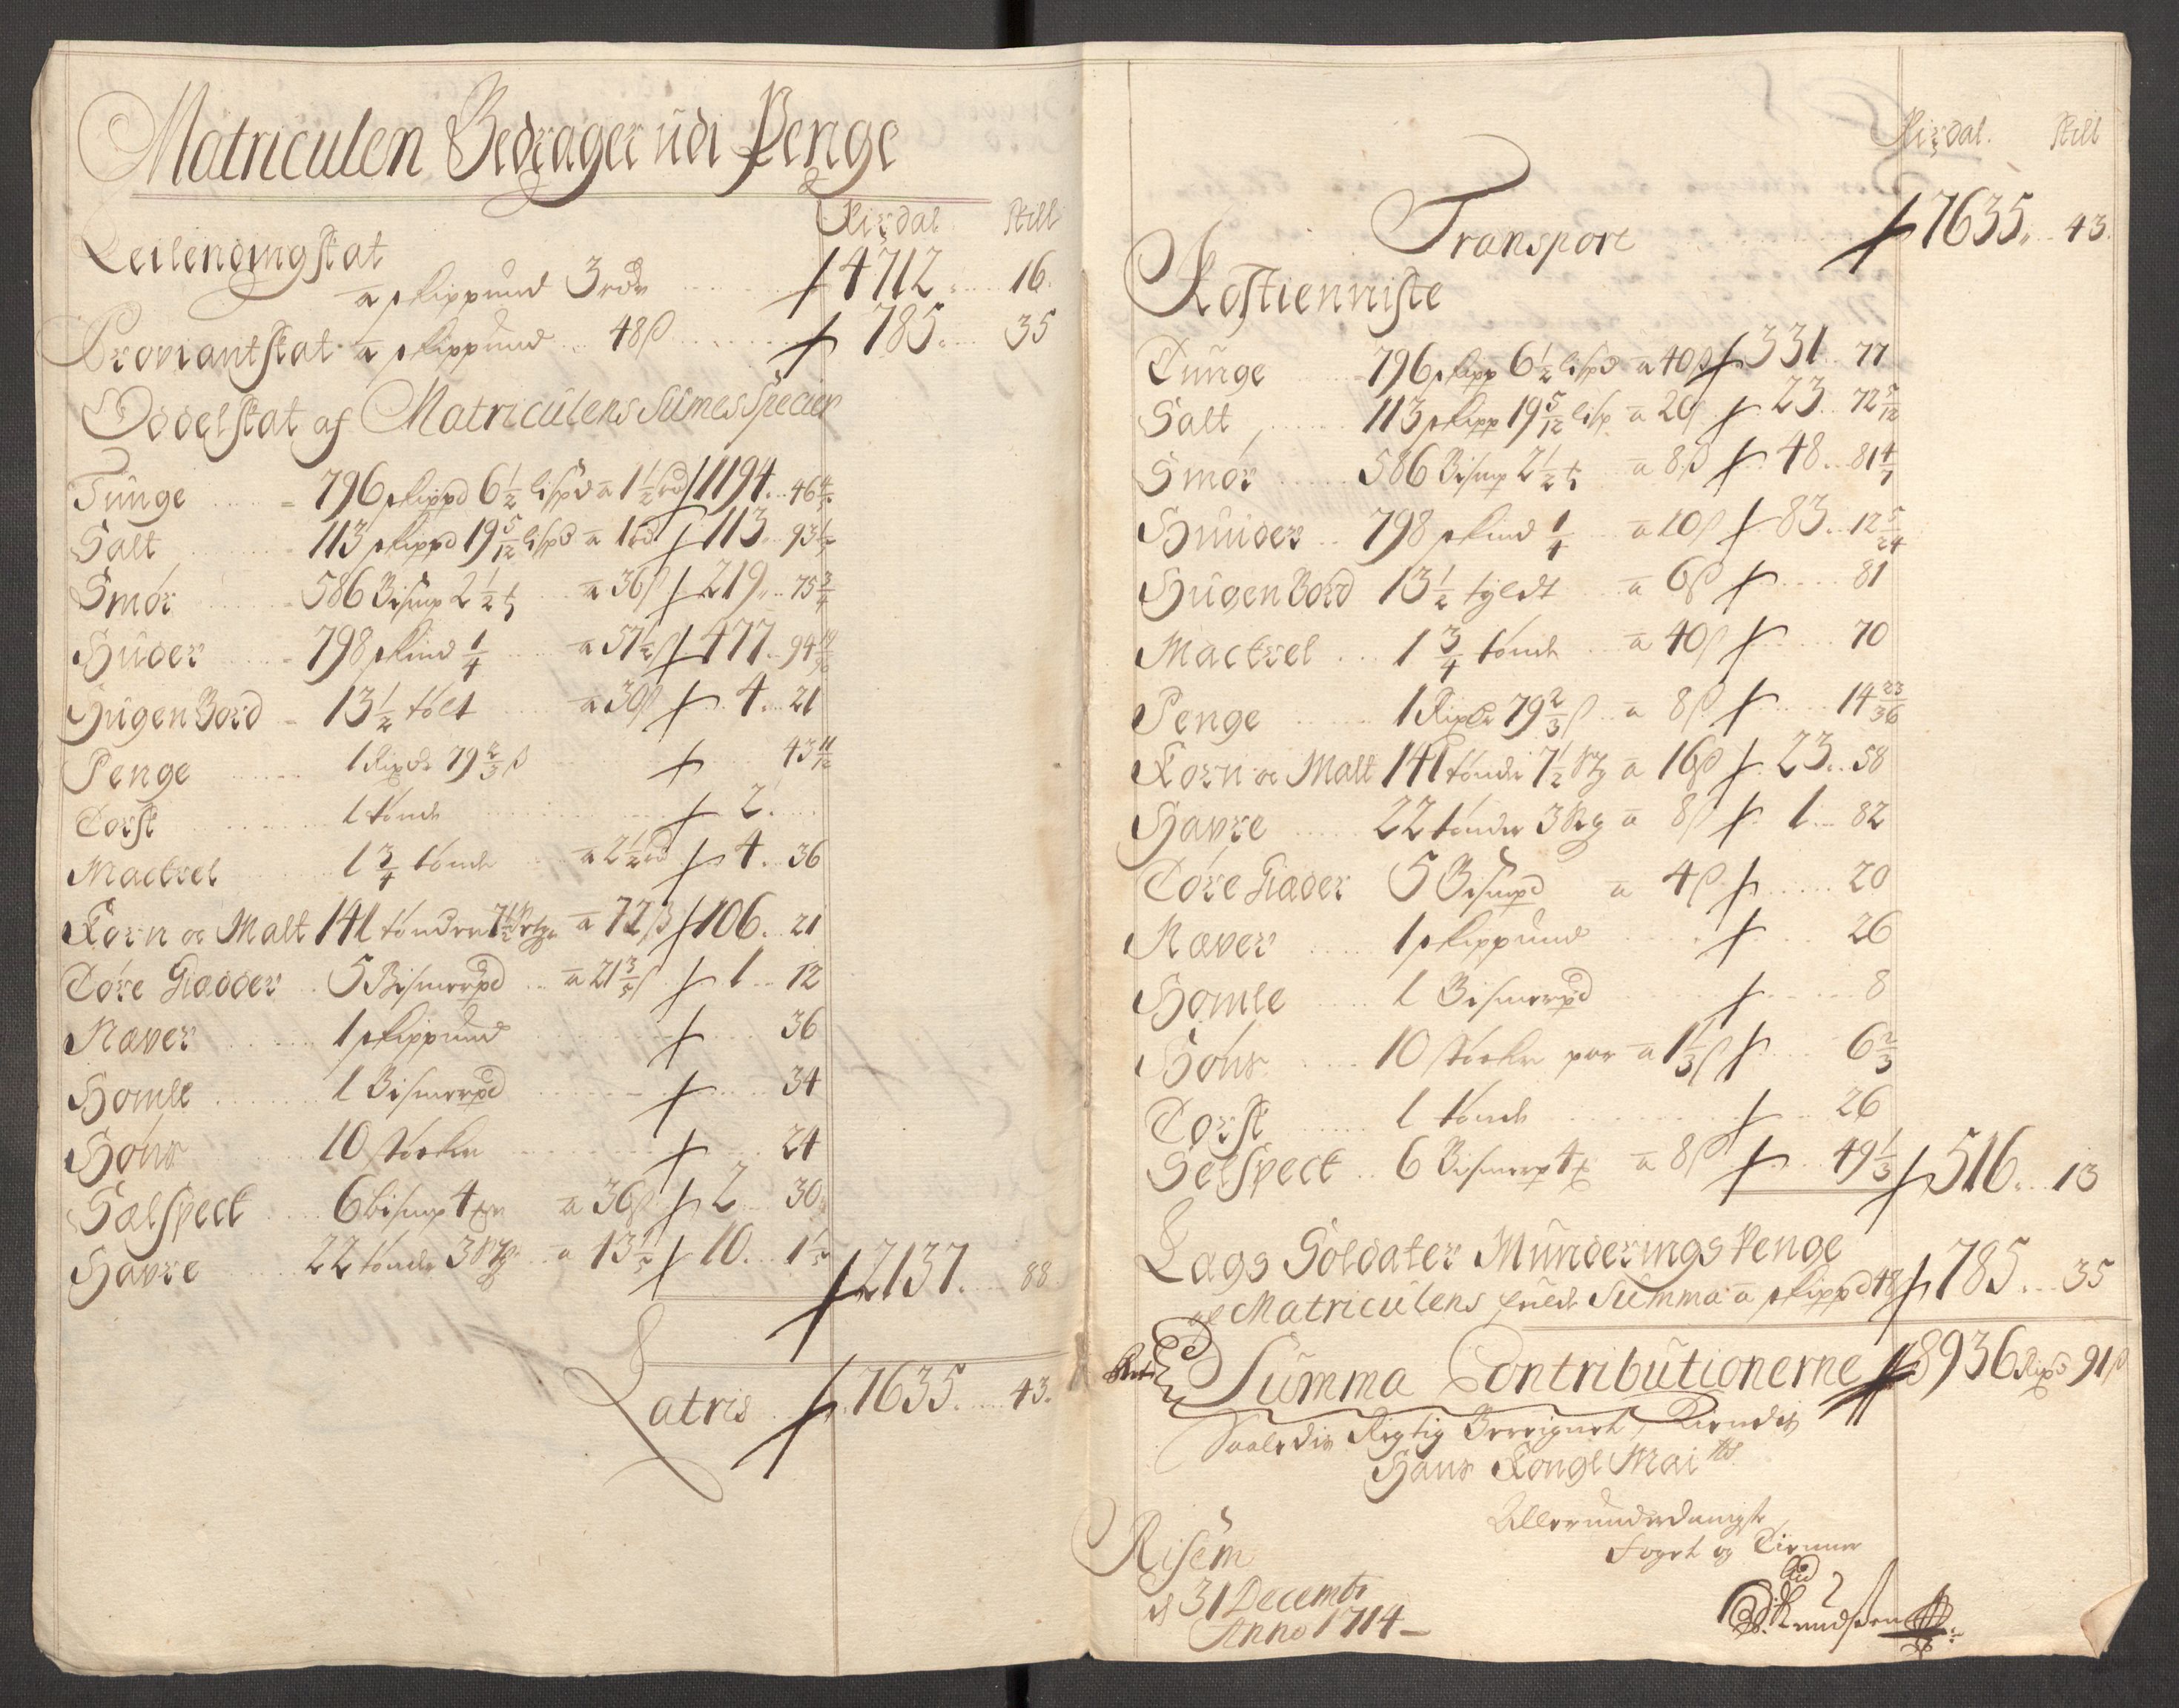 Matriculen Bedrager udi Penge
Rixdal. Skill
Leilendingskat
a skippund 3 rdr 4712 16.
Proviantskat a skippund 48ß 785 35
Oddelskat af Matriculens Sumes Specier
Tunge 796 skippd 6 1/2 lispd a 1 1/2 rd 1194. 46 4/5
Salt 113 skippd 19 5/12 lispd a 1 rd 113. 93 1/5
Smör 586 Bismp 2 1/2 a 36ß 219. 75 3/4
Huder 798 skind 1/4 a 57 1/2 ß 477. 94
Hugen Bord 13 1/2 tolt a 30ß 4. 21
Penge 1 Rixdr 79 2/3 ß 43 11/12
Torsk 1 tønde 2.
Mackrel 1 3/4 tønde a 2 1/2 rd 4. 36
Korn oc Malt 141 tønder 7 1/2 a 72ß 106. 21
Töre Giædder 5 Bismerpd a 21 3/5 ß 1. 12
Næver 1 skippund 36
Homle 1 Bismerpd 34
Höns 10 støcher 24
Sælspeck 6 bismp 4 a 36ß 2. 30
Havre 22 tønder 3 a 13 1/5 10. 1 1/5 2137. 88
Latris 7635. 43.
Rixdal. Skill
Transport 7635. 43.
Rostienniste
Tunge 796 skipp 6 1/2 lispd a 40ß 331. 77
Salt 113 skipp 19 5/12 lisp a 20ß 23. 72 5/12
Smör 586 Bismp 2 1/2 a 8ß 48. 81 4/7
Huuder 798 skind 1/4 a 10ß 83. 12 5/24
Hugen Bord 13 1/2 tyldt a 6ß 81
Mackrel 1 3/4 tønde a 40ß 70
Penge 1 Rixdr 79 2/3 ß a 8ß 14 23/36
Korn oc Malt 141 tønde 7 1/2 a 16ß 23. 58
Havre 22 tønder 3 a 8ß 1. 82
Töre Giæder 5 Bismpd a 4ß 20
Næver 1 skippund 26
Homle 1 Bismerpd 8
Höns 10 støcher par a 1 1/3 ß 6 2/3
Torsk 1 tønde 26
Selspeck 6 Bismerp 4 a 8ß 49 1/3 516. 13
Lægs Soldater Munderings Penge
af Matriculens fulde Summa a skippd 48ß 785. 35
Summa Contributionerne 8936 Rixd 91ß
Saaledis Rigtig Bereignet, Kiendis
Hans Kongl Mai ts
Allerunderdanigste
foget og Tienner
Risem
d 31 Decembr
Anno 1714
Knudsen